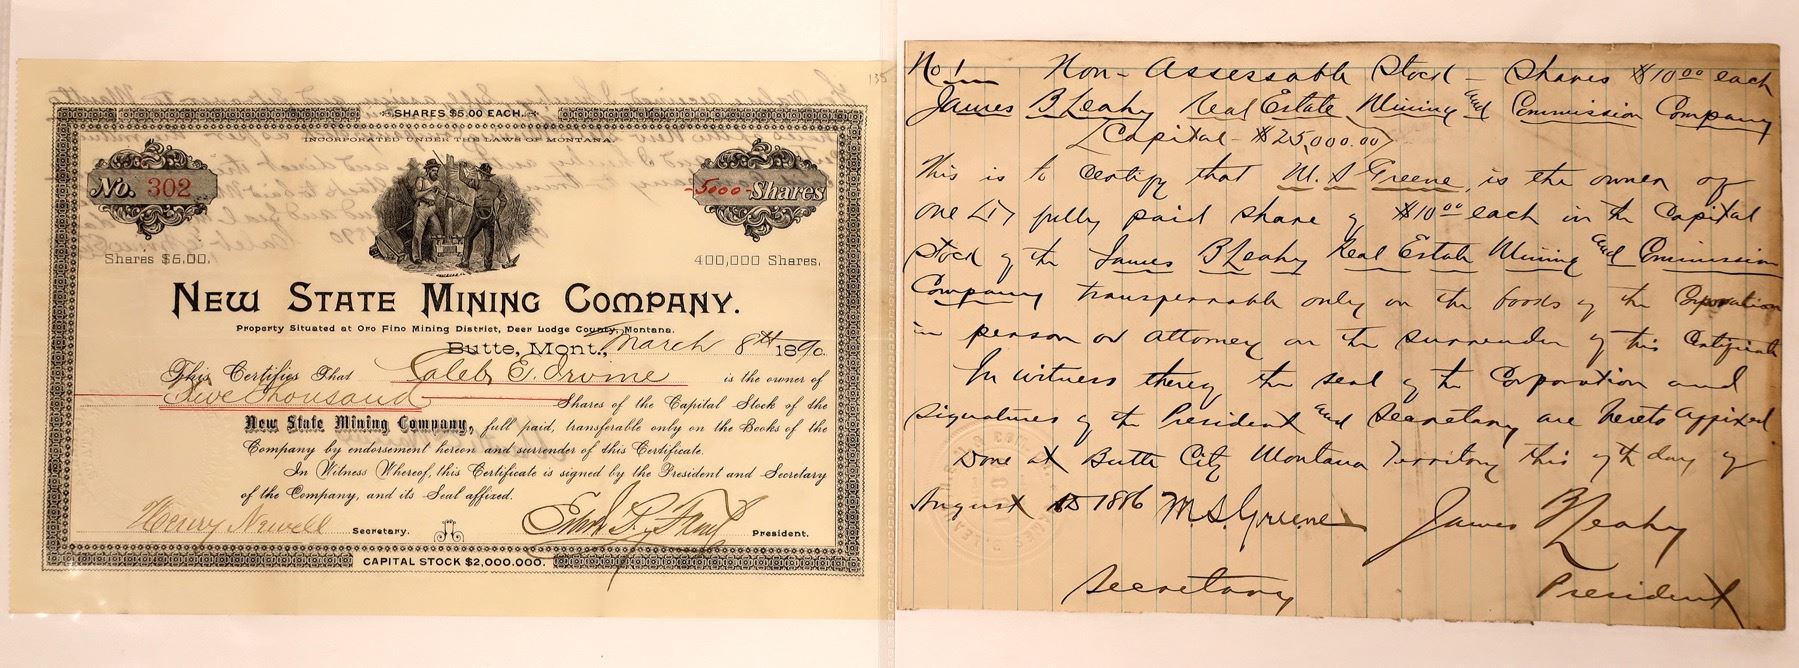 135
SHARES $5.00 EACH.
INCORPORATED UNDER THE LAWS OF MONTANA
No. 302
-5000- Shares
Shares $5.00.
400,000 Shares.
NEW STATE MINING COMPANY.
Property Situated at Oro Fino Mining District, Deer Lodge County, Montana.
Butte, Mont., March 8th 1890
This Certifies That Caleb E. Irvine is the owner of
Five Thousand Shares of the Capital Stock of the
New State Mining Company, full paid, transferable only on the Books of the
Company by endorsement hereon and surrender of this Certificate.
In Witness Whereof, this Certificate is signed by the President and Secretary
of the Company, and its Seal affixed.
Henry Newell Secretary.
President.
CAPITAL STOCK $2,000.000.
No 1 Non-Assessable Stock - Shares $10.00 each
James B Leahy Real Estate Mining and Commission Company
Capital - $25,000.00
This is to Certify that M. S Greene, is the owner of
one (1) fully paid share of $10.00 each in the Capital
Stock of the James B Leahy Real Estate Mining and Commission
Company transferrable only on the books of the Corporation
in person or Attorney on the surrender of this Certificate
In witness thereof the seal of the Corporation and
signatures of the President and Secretary are hereto affixed
Done at Butte City Montana Territory this 7th day of
August 1886 M S Greene James B Leahy
Secretary President